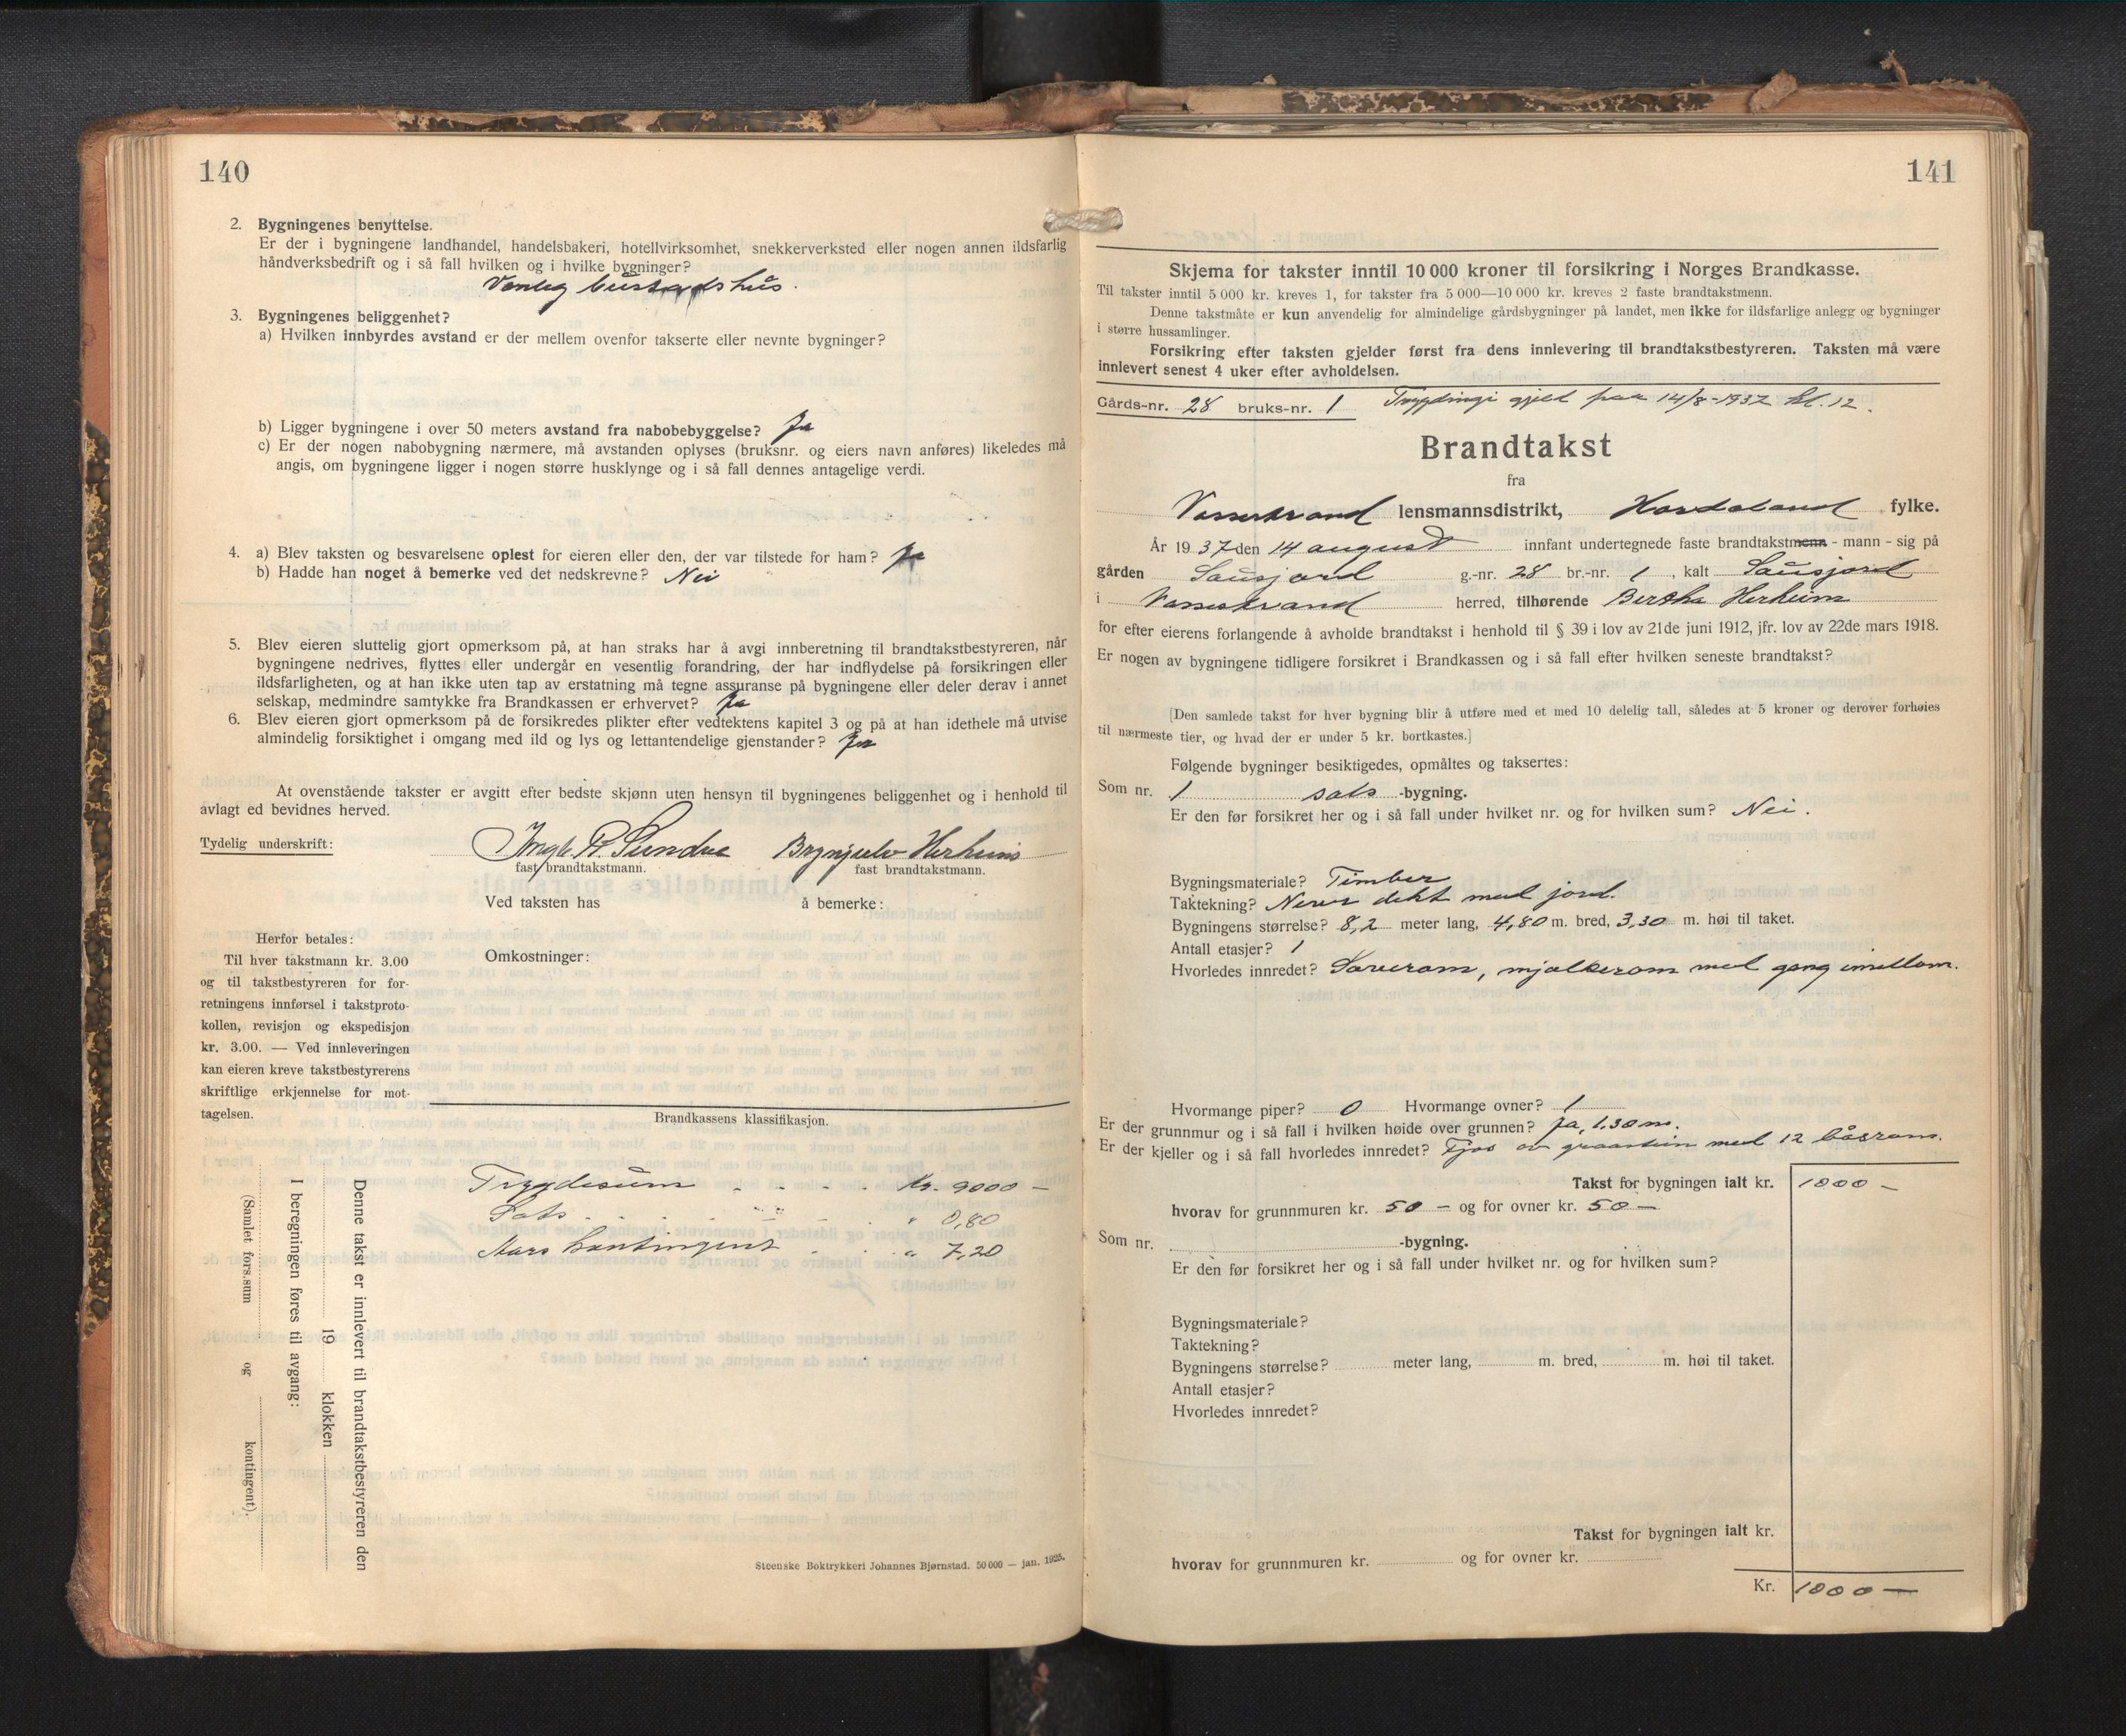 140
2. Bygningenes benyttelse.
Er der i bygningene landhandel, handelsbakeri, hotellvirksomhet, snekkerverksted eller nogen annen ildsfarlig
håndverksbedrift og i så fall hvilken og i hvilke bygninger?
Vanleg bustadshus.
3. Bygningenes beliggenhet?
a) Hvilken innbyrdes avstand er der mellem ovenfor takserte eller nevnte bygninger?
b) Ligger bygningene i over 50 meters avstand fra nabobebyggelse? Ja
c) Er der nogen nabobygning nærmere, må avstanden oplyses (bruksnr. og eiers navn anføres) likeledes må
angis, om bygningene ligger i nogen større husklynge og i så fall dennes antagelige verdi.
4. a) Blev taksten og besvarelsene oplest for eieren eller den, der var tilstede for ham? Ja
b) Hadde han noget å bemerke ved det nedskrevne? Nei
5. Blev eieren sluttelig gjort opmerksom på, at han straks har å avgi innberetning til brandtakstbestyreren, når
bygningene nedrives, flyttes eller undergår en vesentlig forandring, der har indflydelse på forsikringen eller
ildsfarligheten, og at han ikke uten tap av erstatning må tegne assuranse på bygningene eller deler derav i annet
selskap, medmindre samtykke fra Brandkassen er erhvervet? Ja
6. Blev eieren gjort opmerksom på de forsikredes plikter efter vedtektens kapitel 3 og på at han idethele må utvise
almindelig forsiktighet i omgang med ild og lys og lettantendelige gjenstander? Ja
At ovenstående takster er avgitt efter bedste skjønn uten hensyn til bygningenes beliggenhet og i henhold til
avlagt ed bevidnes herved.
Tydelig underskrift: R. Sundve Brynjulv Herheim
fast brandtakstmann. fast brandtakstmann.
Ved taksten has å bemerke:
Herfor betales:
Til hver takstmann kr. 3.00
og til takstbestyreren for for-
retningens innførsel i takstproto-
kollen, revisjon og ekspedisjon
kr. 3.00. — Ved innleveringen
kan eieren kreve takstbestyrerens
skriftlige erkjennelse for mot-
tagelsen.
Omkostninger:
Brandkassens klassifikasjon.
Trygdesum - - - - kr. 9000 -
Sats - - - - " 0,80
Aars kontingent - - - " 7,20
Denne takst er innlevert til brandtakstbestyreren den
19 klokken
I beregningen føres til avgang:
(Samlet fors.sum og kontingent).
Steenske Boktrykkeri Johannes Bjørnstad. 50 000 — jan. 1925.
141
Skjema for takster inntil 10 000 kroner til forsikring i Norges Brandkasse.
Til takster inntil 5 000 kr. kreves 1, for takster fra 5 000—10 000 kr. kreves 2 faste brandtakstmenn.
Denne takstmåte er kun anvendelig for almindelige gårdsbygninger på landet, men ikke for ildsfarlige anlegg og bygninger
i større hussamlinger.
Forsikring efter taksten gjelder først fra dens innlevering til brandtakstbestyreren. Taksten må være
innlevert senest 4 uker efter avholdelsen.
Gårds-nr. 28 bruks-nr. 1 Trygdingi gjeld fraa 14/8-1937 kl. 12.
Brandtakst
fra
Vossestrand lensmannsdistrikt, Hordaland fylke.
År 1937 den 14 august innfant undertegnede faste brandtakstmenn - mann - sig på
gården Sausjord g.-nr. 28 br.-nr. 1, kalt Sausjord
i Vossestrand herred, tilhørende Bertha Herheim
for efter eierens forlangende å avholde brandtakst i henhold til § 39 i lov av 21de juni 1912, jfr. lov av 22de mars 1918.
Er nogen av bygningene tidligere forsikret i Brandkassen og i så fall efter hvilken seneste brandtakst?
[Den samlede takst for hver bygning blir å utføre med et med 10 delelig tall, således at 5 kroner og derover forhøies
til nærmeste tier, og hvad der er under 5 kr. bortkastes.]
Følgende bygninger besiktigedes, opmåltes og taksertes:
Som nr. 1 sæls -bygning.
Er den før forsikret her og i så fall under hvilket nr. og for hvilken sum? Nei.
Bygningsmateriale? Timber
Taktekning? Never dekt med jord.
Bygningens størrelse? 8,2 meter lang, 4,80 m. bred, 3,30 m. høi til taket.
Antall etasjer? 1
Hvorledes innredet? Soverom, mjølkerom med gang imellom.
Hvormange piper? 0 Hvormange ovner? 1
Er der grunnmur og i så fall i hvilken høide over grunnen? Ja, 1.30 m.
Er der kjeller og i så fall hvorledes innredet? Fjøs av graastein med 12 båsrom.
Takst for bygningen ialt kr. 1000 -
hvorav for grunnmuren kr. 50 - og for ovner kr. 50 -
Som nr. -bygning.
Er den før forsikret her og i så fall under hvilket nr. og for hvilken sum?
Bygningsmateriale?
Taktekning?
Bygningens størrelse? meter lang, m. bred, m. høi til taket.
Antall etasjer?
Hvorledes innredet?
Takst for bygningen ialt kr.
hvorav for grunnmuren kr. og for ovner kr.
Kr. 1000 —